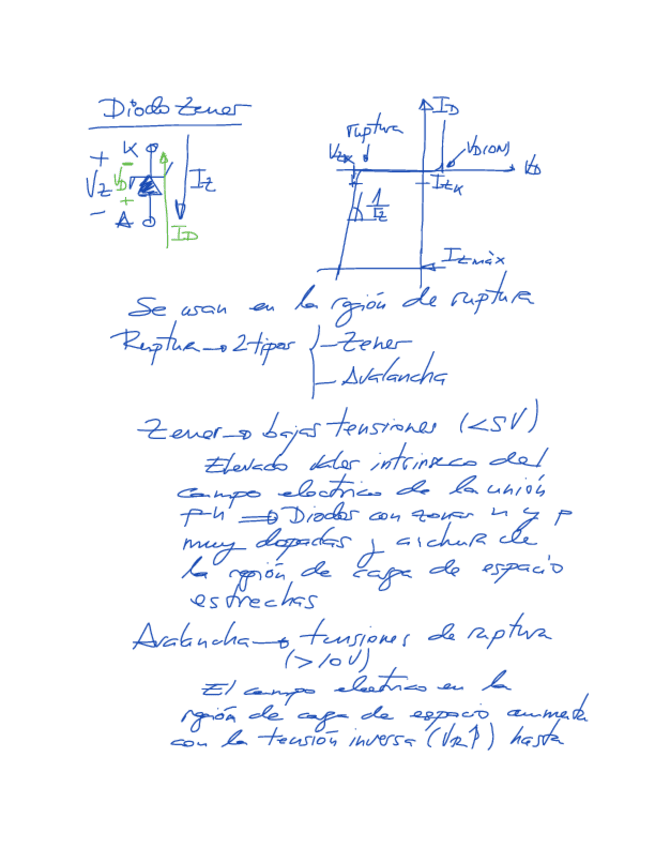 Diodo Zener
+ K
Vz VD Iz
- A
ID
ID
ruptura
VZK
VD(ON)
VD
IZK
1
Iz
IZmàx
Se usan en la región de ruptura
Ruptura → 2 tipos { - Zener
- Avalancha
Zener → bajas tensiones (<5V)
Elevado valor intrinseco del
campo electrico de la unión
p-n ⇒ Diodos con zonas n y p
muy dopadas y anchura de
la región de carga de espacio
estrechas
Avalancha → tensiones de ruptura
(>10V)
El campo electrico en la
región de carga de espacio aumenta
con la tensión inversa (VR↑) hasta